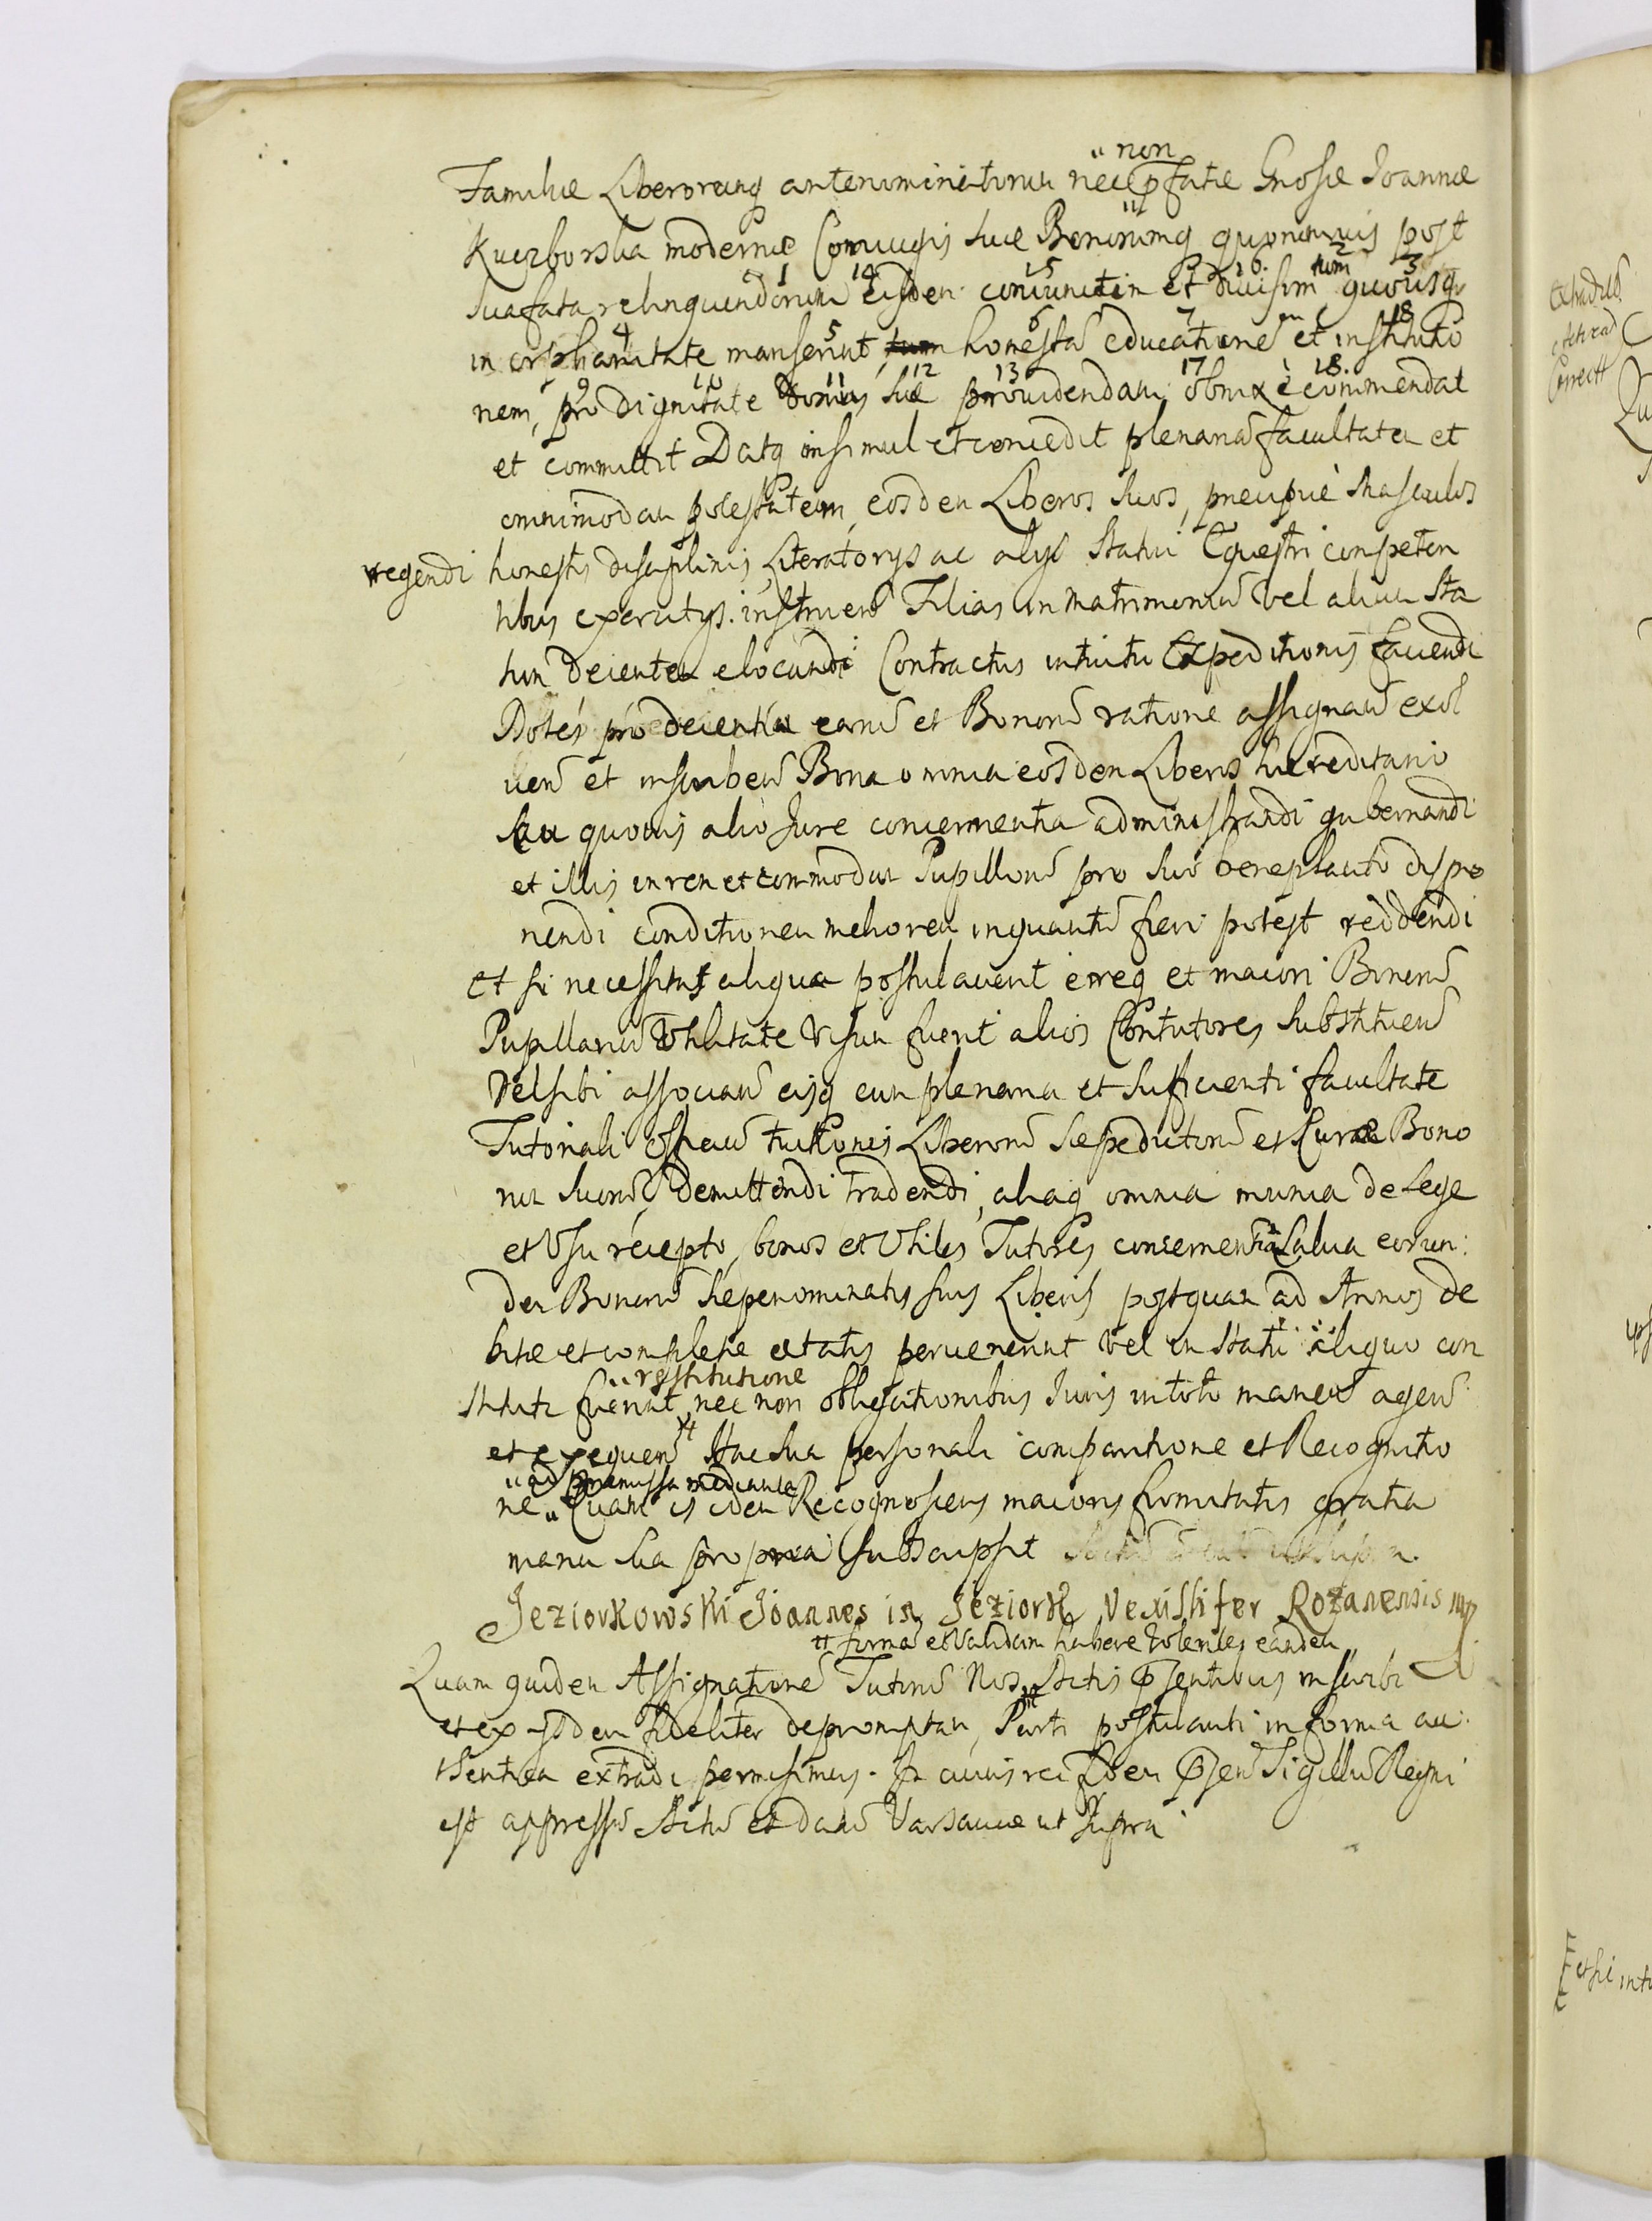 non
Familiæ Liberorumq antenominatorum nec pfatæ Gnosæ Joannæ
Kuczborska modernæ Coniugis suæ Bonorumq quorumvis post
sua fata relinquendorum eisdem coniunctim et divisim tum quousq
in orphanitate manserint, honestã educationẽ et institutio
nem, pro dignitate domus suæ providendam obnixè commendat
et committit Datq insimul et concedit plenariã facultatem et
omnimodam potestatem, eosdem Liberos suos, præcipuè Masculos
regendi honestis disciplinis Literatorys ac alys Statui Equestri competen
tibus exercitys instruen Filias in matrimoniũ vel alium sta
tum decenter elocandi Contractus intuitu Expeditionis faciendi
Dotes pro decentia earũ et Bonorũ ratione assignan exol
ven et inscriben Bona omnia eosdem Liberos hæreditario
seu quovis alio Jure concernentia administrandi gubernandi
et illis in rem et commodum Pupillorũ pro suo beneplacito dispo
nendi conditionem meliorem inquantũ fieri potest reddendi
et si necessitas aliqua postulaverit ereq et maiori Bonorũ
Pupillariũ Utilitate visum fuerit alios Contutores substituen
vel sibi associan eisq cum plenaria et sufficienti facultate
Tutoriali Officiũ tuitionis Liberorũ sæpedictorũ et Curæ Bono
rum suorũ demittendi tradendi, aliaq omnia munia de Lege
et Usu recepto, bonos et Utiles Tutores concernentia Salva eorun:
dem Bonorũ sæpenominatis suis Liberis postquam ad Annos de
bitæ et completæ ætatis pervenerint vel in statu aliquo con
restitutione
stituti fuerint nec non obligationibus Juris intoto manen agen
et exequen Hac sua personali comparitione et Recognitio
ad præmissa mediante
ne Quam is idem Recognoscens maioris firmitatis gratia
manu sua propria subscripsit
Jeziorkowski Joannes in Jeziork Vexillifer Rozanensis mp
firmã et validam habere volentes eandem
Quam quidem Assignationẽ Tutorũ Nos Actis pſentibus inscribi
et ex ysdem fideliter depromptam, Parti postulanti in forma au:
thentica extradi permisimus. In cuius rei fidem pſen Sigillũ Regni
est appressũ Actũ et datũ Varsaviæ ut supra